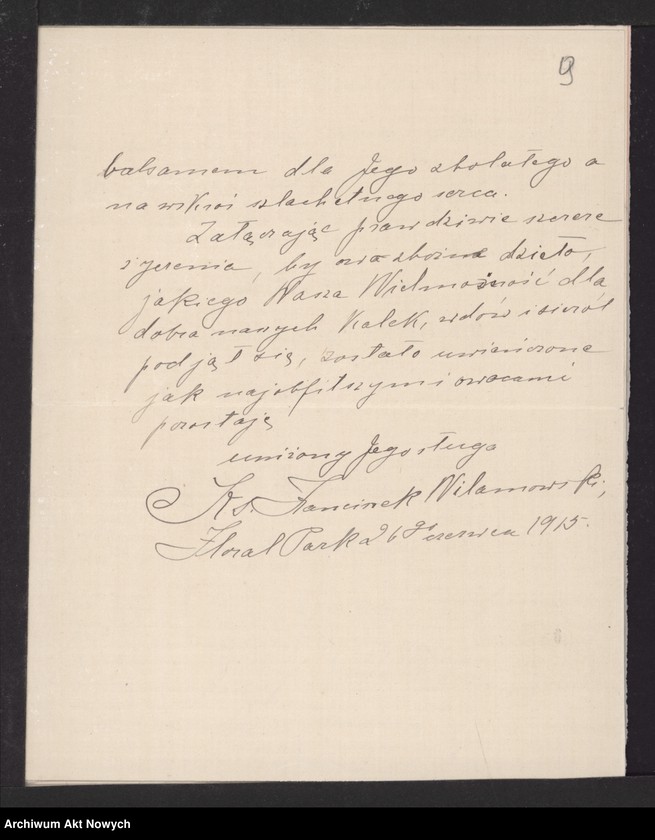 9
balsamem dla Jego zbolałego a
na wskroś szlachetnego serca.
Załączając prawdziwie szczere
życzenia, by owo zbożne dzieło,
jakiego Wasza Wielmożność dla
dobra naszych kalek, wdów i sierót
podjął się, zostało uwieńczone
jak najobfitszymi owocami
pozostaję
uniżony Jego sługa
Ks. Franciszek Wilamowski,
Floral Park 26go czerwca 1915.
Archiwum Akt Nowych